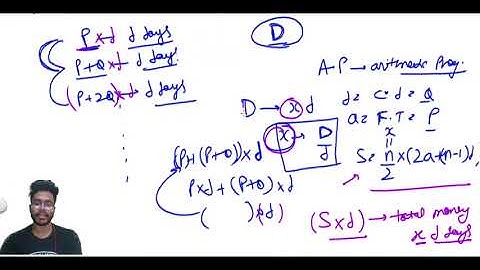 P x d d days
P+Q x d d days
(P+2Q) x d d days
D
A-P → arithmetic Prog.
d = c.d = Q
a = F.T = P
D → x d
x → D/d
x
=
S = n/2 x (2a+(n-1)d)
(P+(P+Q)) x d
P x d + (P+Q) x d
( ) (xd)
(S x d) → total money
x d days